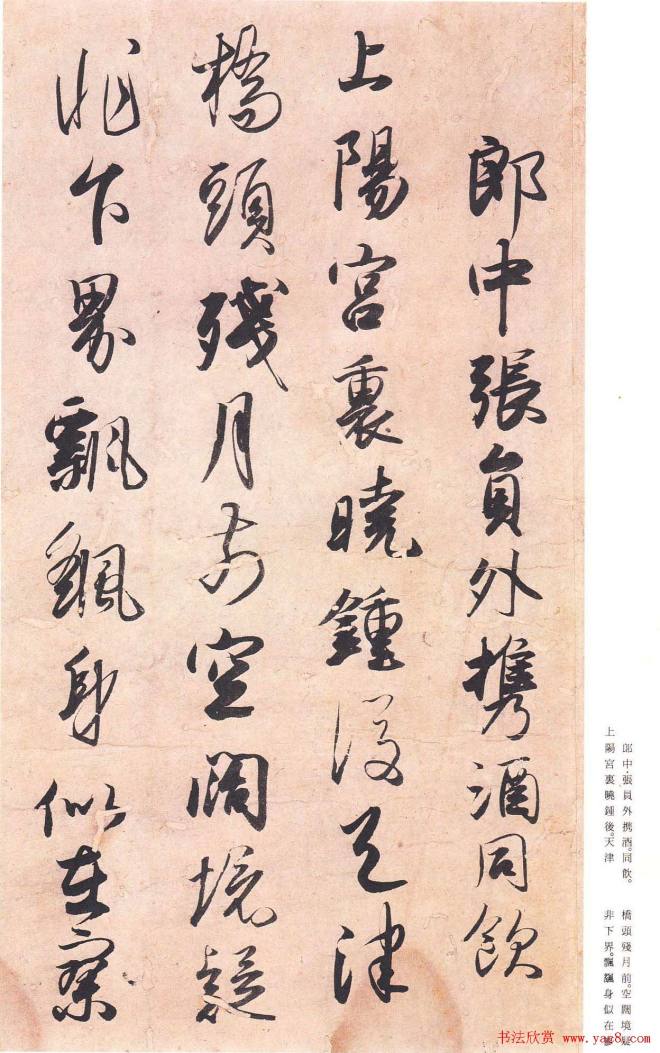 郎中張員外携酒同飲
上陽宮裏曉鍾後天津
橋頭殘月前空闊境疑
非下界飄飄身似在寥
郎中張員外携酒。同飲。
上陽宮裏曉鍾後。天津
橋頭殘月前。空闊境疑
非下界。飄飄身似在
书法欣赏 www.yac8.com